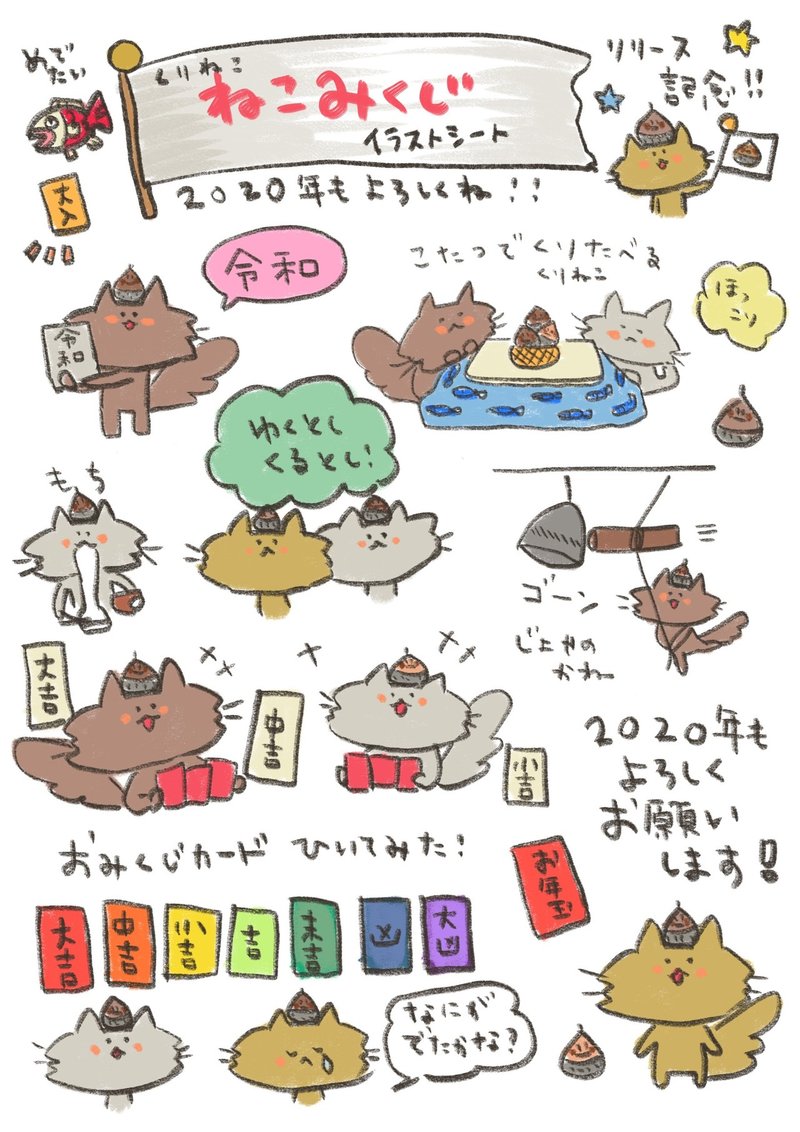 めで
たい
くりねこ
ねこみくじ
イラストシート
リリース
記念!!
2020年もよろしくね!!
大入
令和
令和
こたつでくりたべる
くりねこ
ほっ
こり
ゆくとし
くるとし!
もち
ゴーン
じょやの
かねー
大吉
中吉
小吉
2020年も
よろしく
お願い
します!
おみくじカード ひいてみた!
お年玉
大吉
中吉
小吉
吉
末吉
凶
大凶
なにが
でたかな?